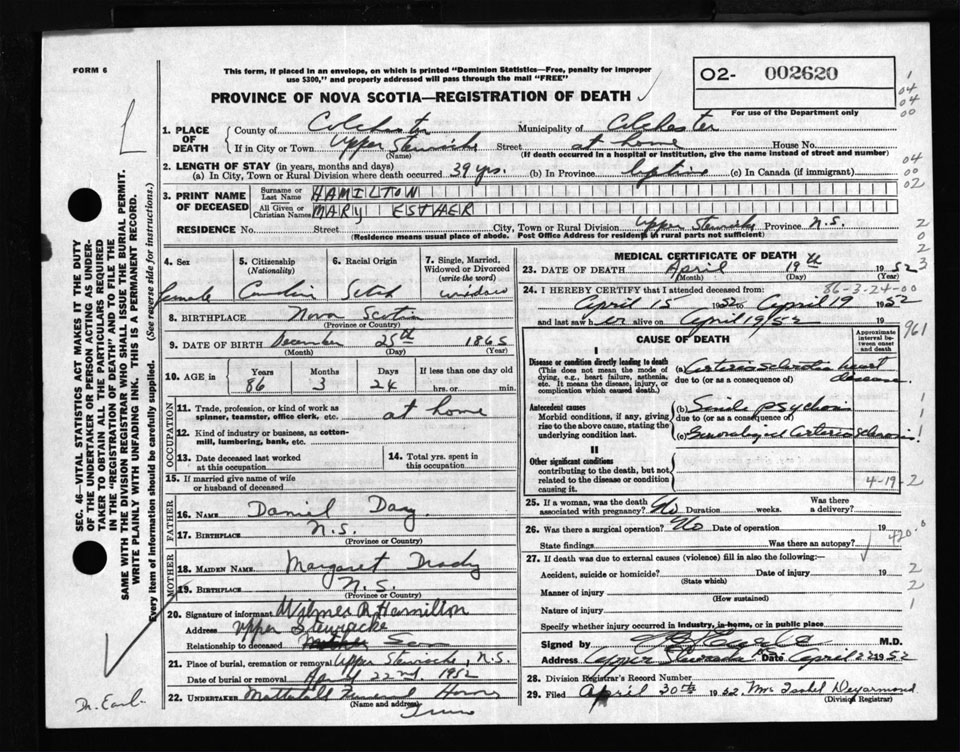 FORM 6
This form, if placed in an envelope, on which is printed "Dominion Statistics—Free, penalty for improper
use $300," and properly addressed will pass through the mail "FREE"
O2- 002620
PROVINCE OF NOVA SCOTIA—REGISTRATION OF DEATH
For use of the Department only
1. PLACE OF DEATH County of Colchester Municipality of Colchester
If in City or Town Upper Stewiacke Street at home House No.
(Name) (If death occurred in a hospital or institution, give the name instead of street and number)
2. LENGTH OF STAY (in years, months and days)
(a) In City, Town or Rural Division where death occurred 39 yrs. (b) In Province lifetime (c) In Canada (if immigrant)
3. PRINT NAME OF DECEASED Surname or Last Name HAMILTON
All Given or Christian Names MARY ESTHER
RESIDENCE No. Street City, Town or Rural Division Upper Stewiacke Province N.S.
(Residence means usual place of abode. Post Office Address for residents in rural parts not sufficient)
SEC. 46—VITAL STATISTICS ACT MAKES IT THE DUTY
OF THE UNDERTAKER OR PERSON ACTING AS UNDER-
TAKER TO OBTAIN ALL THE PARTICULARS REQUIRED
IN THE "REGISTRATION OF DEATH" AND TO FILE THE
SAME WITH THE DIVISION REGISTRAR WHO SHALL ISSUE THE BURIAL PERMIT.
WRITE PLAINLY WITH UNFADING INK. THIS IS A PERMANENT RECORD.
Every item of information should be carefully supplied. (See reverse side for instructions.)
4. Sex
female
5. Citizenship
(Nationality)
Canadian
6. Racial Origin
Scotch
7. Single, Married,
Widowed or Divorced
(write the word)
widow
8. BIRTHPLACE Nova Scotia
(Province or Country)
9. DATE OF BIRTH December 25th 1865
(Month) (Day) (Year)
10. AGE in Years Months Days If less than one day old
86 3 24 hrs. or min.
OCCUPATION
11. Trade, profession, or kind of work as
spinner, teamster, office clerk, etc. at home
12. Kind of industry or business, as cotton-
mill, lumbering, bank, etc.
13. Date deceased last worked
at this occupation
14. Total yrs. spent in
this occupation
15. If married give name of wife
or husband of deceased
FATHER
16. NAME Daniel Day
17. BIRTHPLACE N.S.
(Province or Country)
MOTHER
18. MAIDEN NAME Margaret
19. BIRTHPLACE N.S.
(Province or Country)
20. Signature of informant Wilmer R Hamilton
Address Upper Stewiacke
Relationship to deceased Son
21. Place of burial, cremation or removal Upper Stewiacke, N.S.
Date of burial or removal April 22nd, 1952
22. UNDERTAKER Mattatall Funeral Home
(Name and address)
Truro
MEDICAL CERTIFICATE OF DEATH
23. DATE OF DEATH April 19th 1952
(Month) (Day) (Year)
86-3-24-00
24. I HEREBY CERTIFY that I attended deceased from:
April 15 1952 to April 19 1952
and last saw her alive on April 19/52
CAUSE OF DEATH
Approximate
interval be-
tween onset
and death
I
Disease or condition directly leading to death
(This does not mean the mode of
dying, e.g., heart failure, asthenia,
etc. It means the disease, injury, or
complication which caused death.)
(a) Arteriosclerotic heart
due to (or as a consequence of) disease.
Antecedent causes
Morbid conditions, if any, giving
rise to the above cause, stating the
underlying condition last.
(b) Senile psychosis
due to (or as a consequence of)
(c) Generalized arteriosclerosis
II
Other significant conditions
contributing to the death, but not
related to the disease or condition
causing it.
4-19-2
25. If a woman, was the death
associated with pregnancy? No Duration weeks. Was there
a delivery?
26. Was there a surgical operation? No Date of operation 19
State findings Was there an autopsy?
27. If death was due to external causes (violence) fill in also the following:—
Accident, suicide or homicide? Date of injury 19
(State which)
Manner of injury
(How sustained)
Nature of injury
Specify whether injury occurred in industry, in home, or in public place
Signed by M.D.
Address Upper Stewiacke Date April 22 1952
28. Division Registrar's Record Number
29. Filed April 30th 1952 Mrs Isabel Deyarmond
(Division Registrar)
Dr. Earl
1
04
04
00
04
00
02
2
0
2
3
961
1
1
420.0
2
2
1